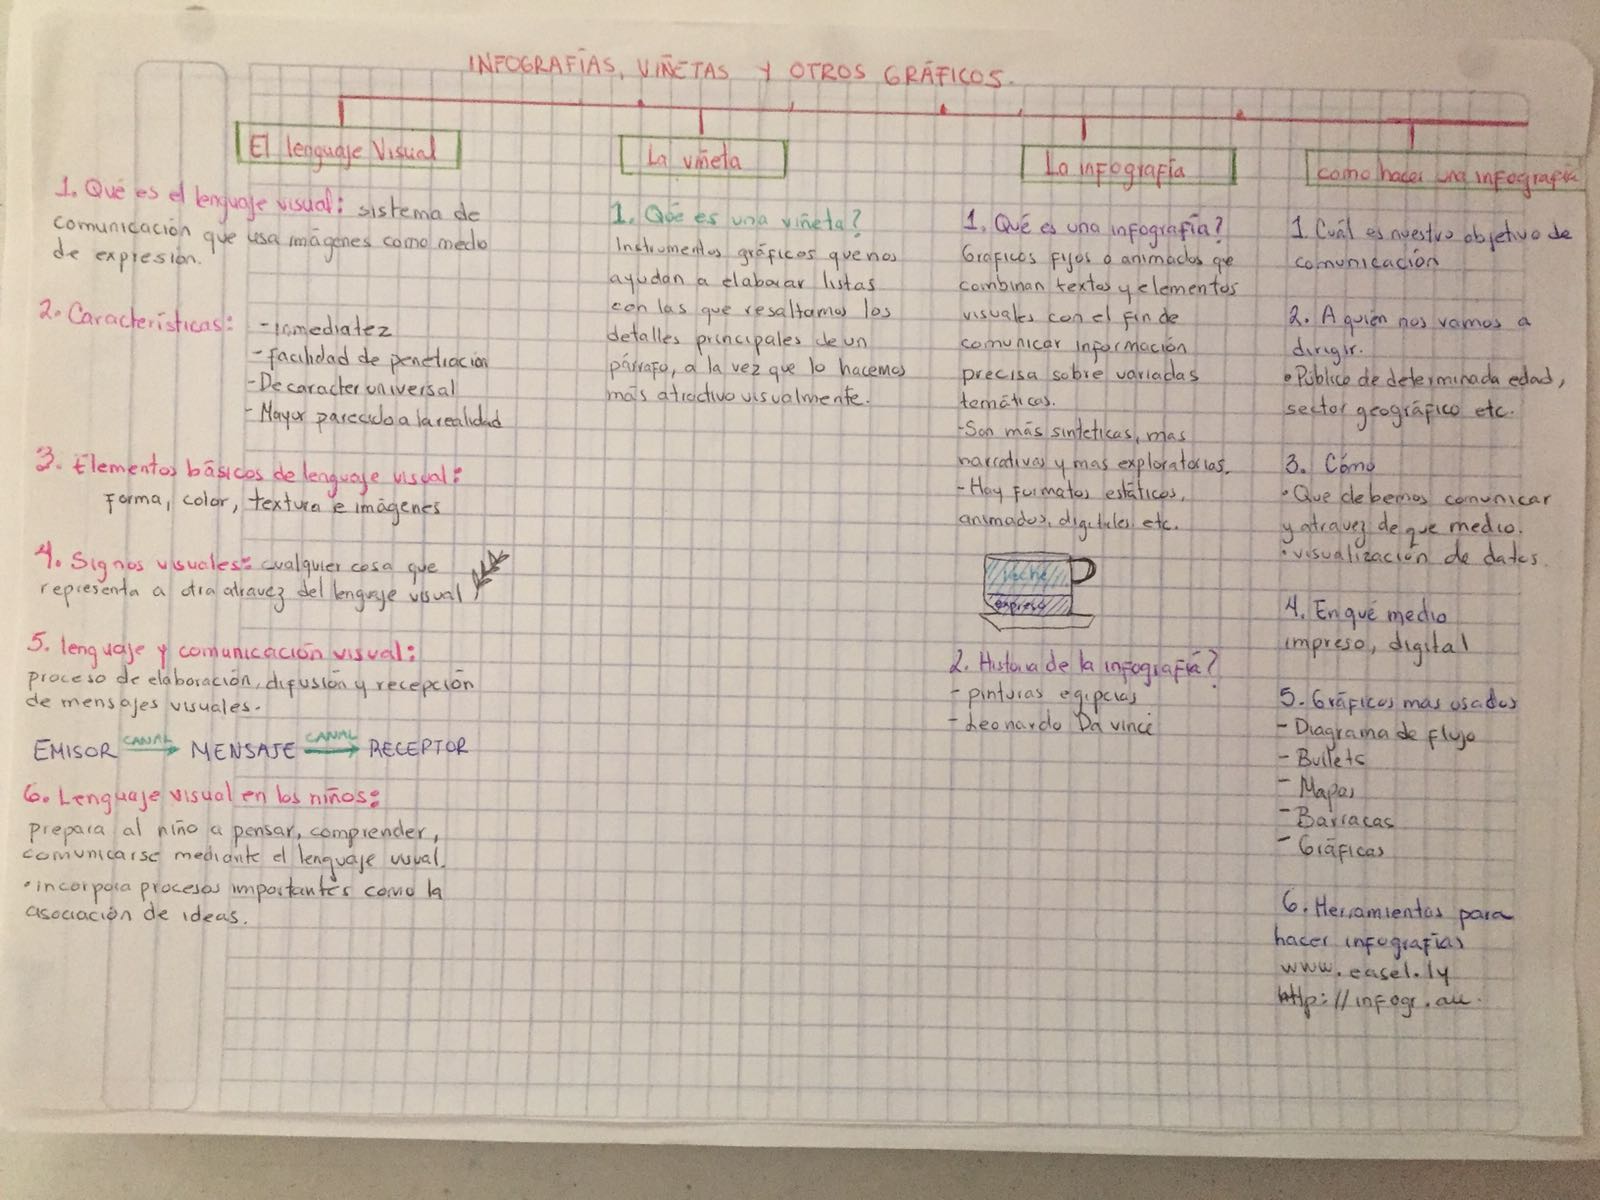 INFOGRAFÍAS, VIÑETAS Y OTROS GRÁFICOS.
El lenguaje Visual
1. Qué es el lenguaje visual: sistema de
comunicación que usa imágenes como medio
de expresión.
2. Características:
- inmediatez
- facilidad de penetración
- De caracter universal
- Mayor parecido a la realidad
3. Elementos básicos de lenguaje visual:
forma, color, textura e imágenes
4. Signos visuales: cualquier cosa que
representa a otra atravez del lenguaje visual
5. lenguaje y comunicación visual:
proceso de elaboración, difusión y recepción
de mensajes visuales.
EMISOR CANAL MENSAJE CANAL RECEPTOR
6. Lenguaje visual en los niños:
prepara al niño a pensar, comprender,
comunicarse mediante el lenguaje visual.
• incorpora procesos importantes como la
asociación de ideas.
La viñeta
1. Qué es una viñeta?
Instrumentos gráficos que nos
ayudan a elaborar listas
con las que resaltamos los
detalles principales de un
párrafo, a la vez que lo hacemos
más atractivo visualmente.
La infografía
1. Qué es una infografía?
Graficos fijos o animados que
combinan textos y elementos
visuales con el fin de
comunicar información
precisa sobre variadas
temáticas.
- Son más sinteticas, mas
narrativas y mas exploratorias.
- Hay formatos estáticos,
animados, digitales etc.
expreso
2. Historia de la infografía?
- pinturas egipcias
- Leonardo Da vinci
como hacer una infografía
1. Cuál es nuestro objetivo de
comunicación
2. A quien nos vamos a
dirigir.
• Público de determinada edad,
sector geográfico etc.
3. Cómo
• Que debemos comunicar
y atravez de que medio.
• visualización de datos.
4. En qué medio
impreso, digital
5. Gráficos mas usados
- Diagrama de flujo
- Bullets
- Mapas
- Barracas
- Gráficas
6. Herramientas para
hacer infografías
www.easel.ly
http://infogr.am